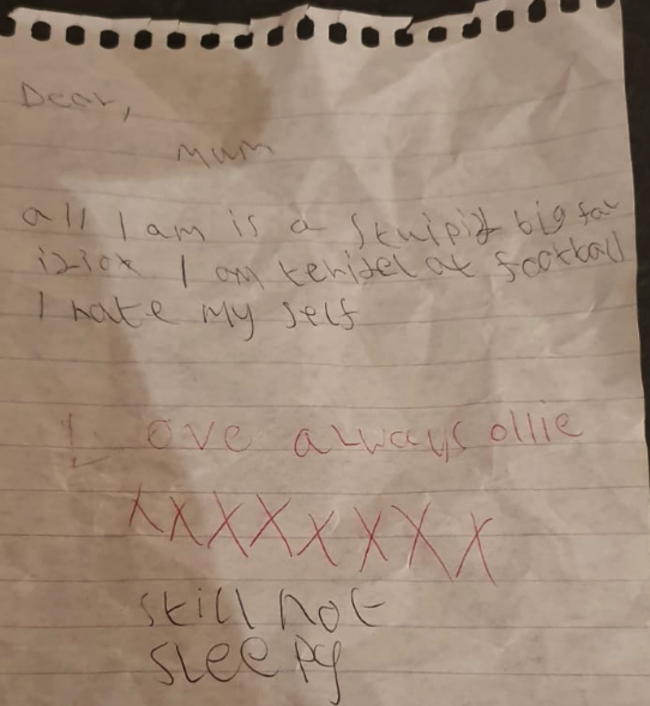 Dear,
Mum
all I am is a stuipid big fat
idiot I am teridel at football
I hate my self
Love always ollie
xxxxxxxx
still not
sleepy